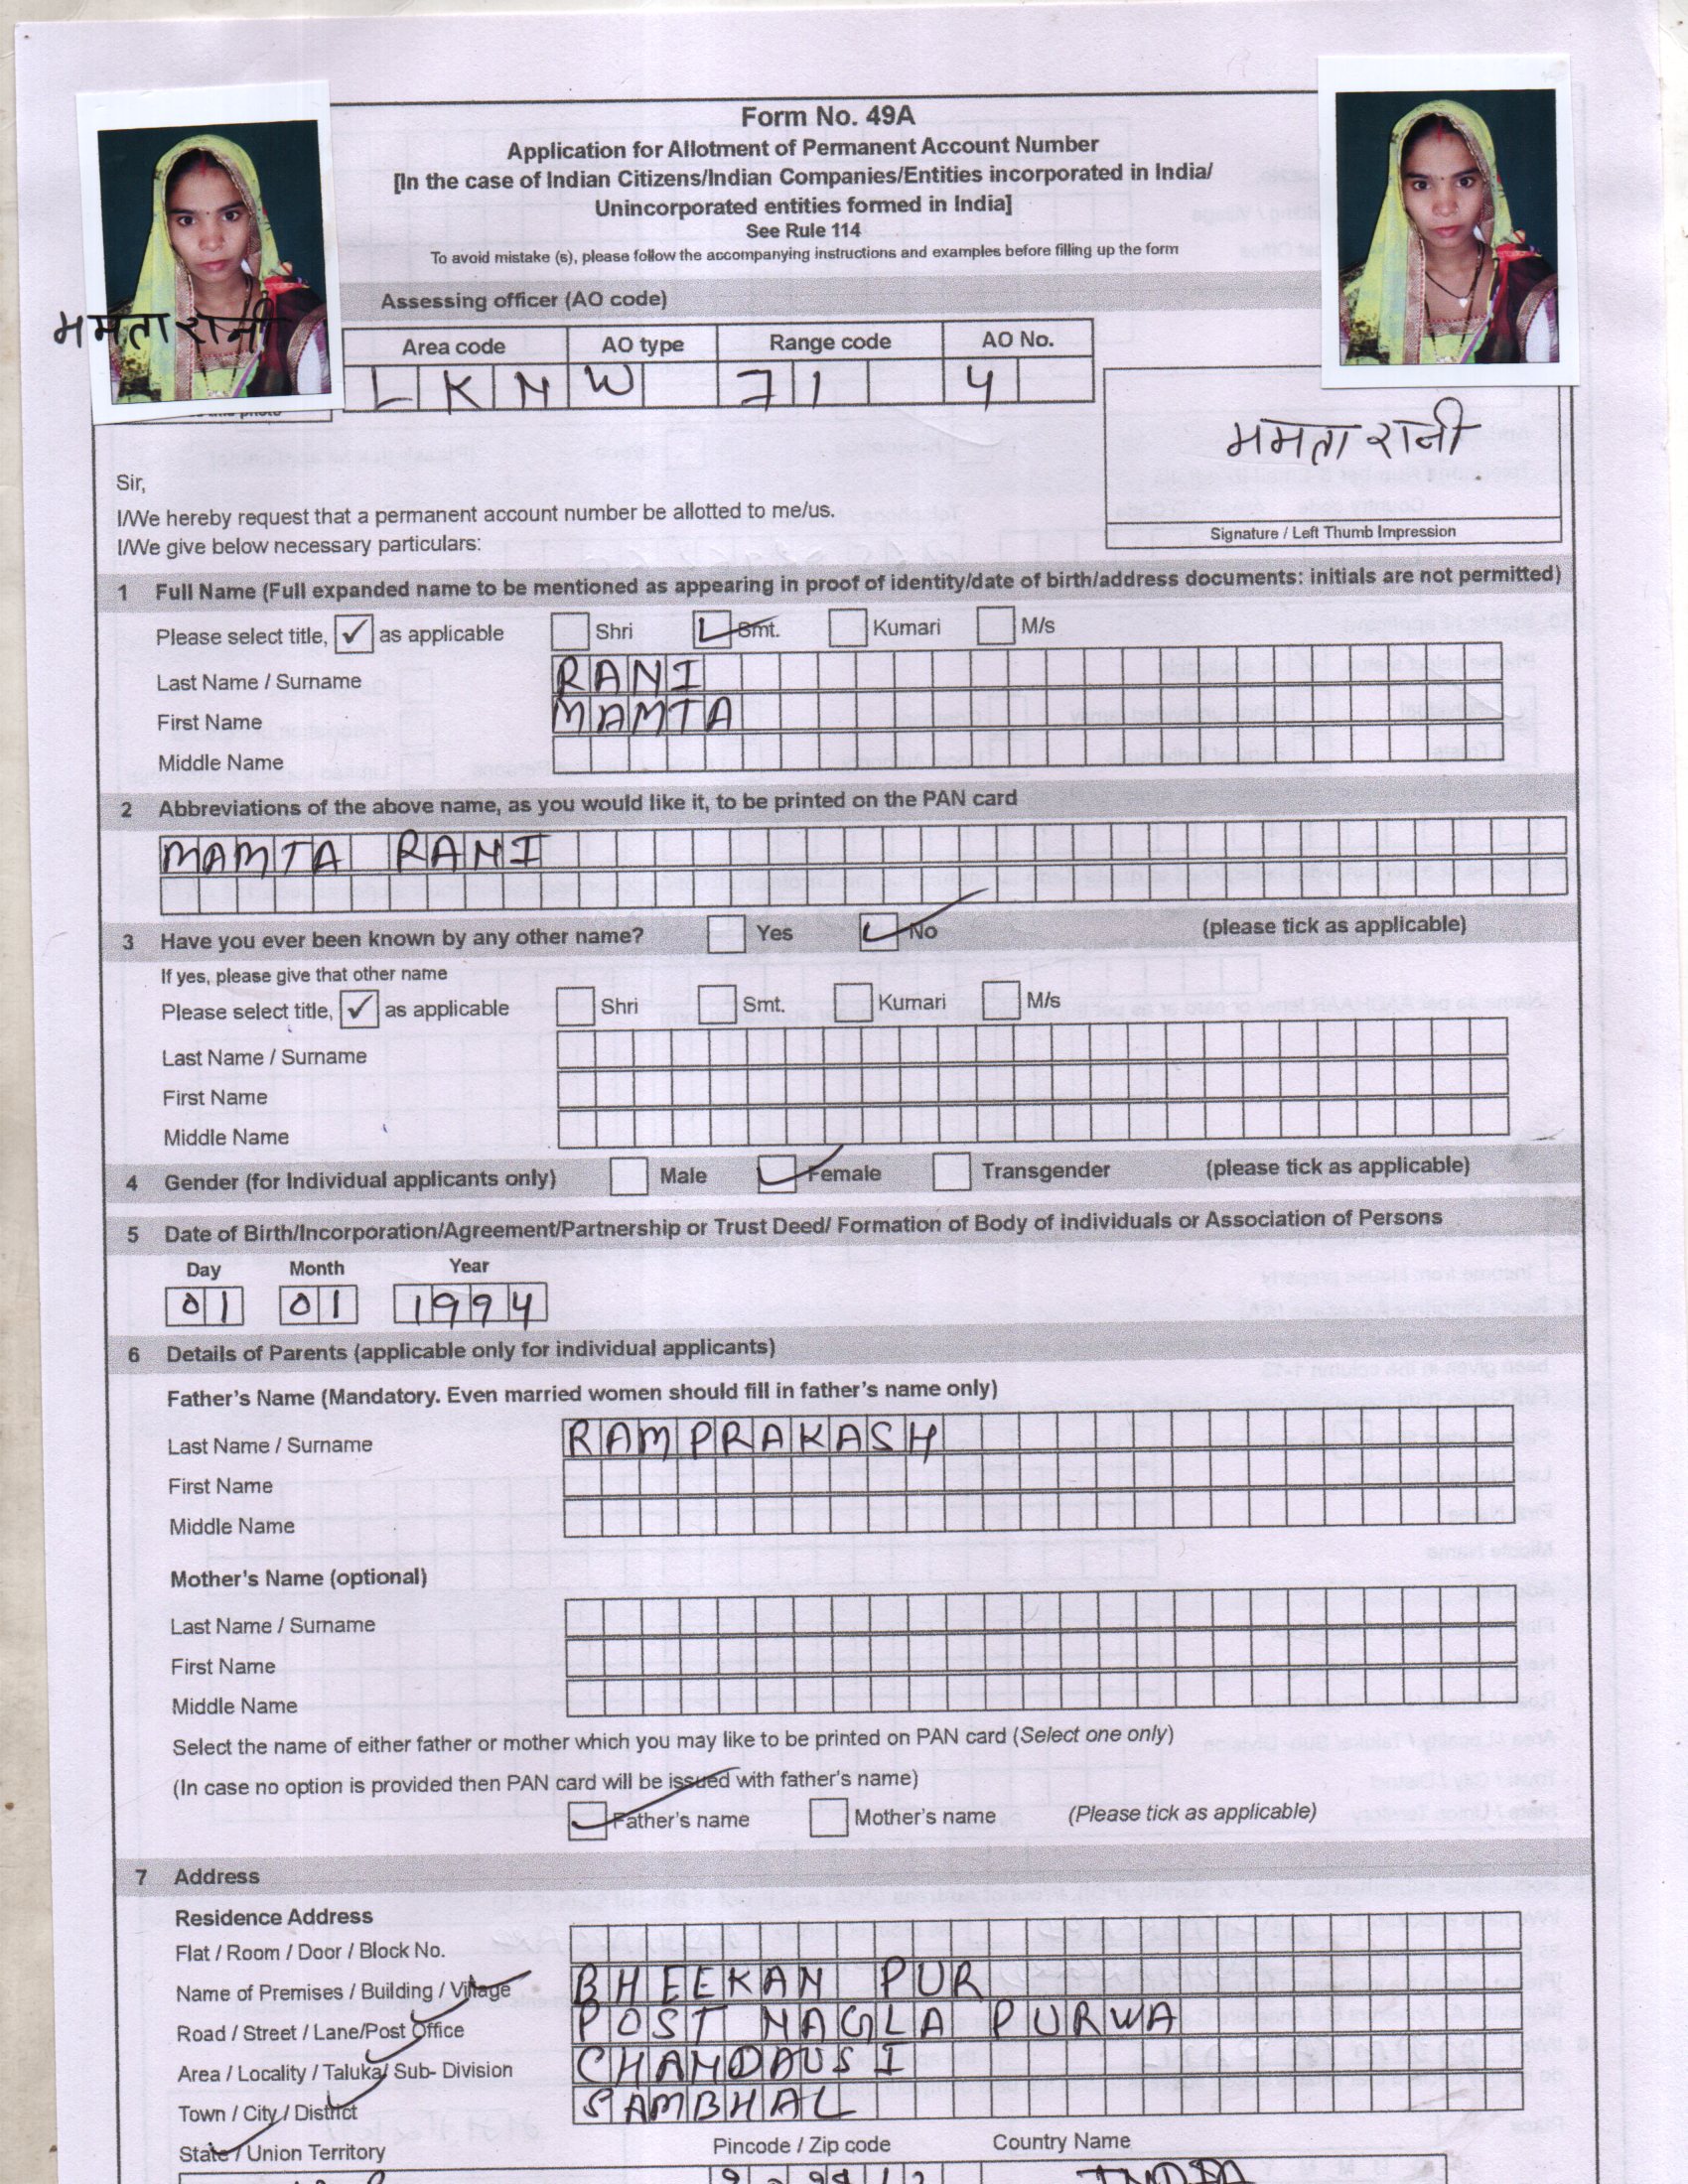 Form No. 49A
Application for Allotment of Permanent Account Number
[In the case of Indian Citizens/Indian Companies/Entities incorporated in India/
Unincorporated entities formed in India]
See Rule 114
To avoid mistake (s), please follow the accompanying instructions and examples before filling up the form
Assessing officer (AO code)
Area code AO type Range code AO No.
LKN W 71 4
ममता रानी
ममता रानी
Signature / Left Thumb Impression
Sir,
I/We hereby request that a permanent account number be allotted to me/us.
I/We give below necessary particulars:
1 Full Name (Full expanded name to be mentioned as appearing in proof of identity/date of birth/address documents: initials are not permitted)
Please select title, ✓ as applicable Shri Smt. Kumari M/s
Last Name / Surname RANI
First Name MAMTA
Middle Name
2 Abbreviations of the above name, as you would like it, to be printed on the PAN card
MAMTA RANI
3 Have you ever been known by any other name? Yes No (please tick as applicable)
If yes, please give that other name
Please select title, ✓ as applicable Shri Smt. Kumari M/s
Last Name / Surname
First Name
Middle Name
4 Gender (for Individual applicants only) Male Female Transgender (please tick as applicable)
5 Date of Birth/Incorporation/Agreement/Partnership or Trust Deed/ Formation of Body of individuals or Association of Persons
Day Month Year
01 01 1994
6 Details of Parents (applicable only for individual applicants)
Father's Name (Mandatory. Even married women should fill in father's name only)
Last Name / Surname RAMPRAKASH
First Name
Middle Name
Mother's Name (optional)
Last Name / Surname
First Name
Middle Name
Select the name of either father or mother which you may like to be printed on PAN card (Select one only)
(In case no option is provided then PAN card will be issued with father's name)
Father's name Mother's name (Please tick as applicable)
7 Address
Residence Address
Flat / Room / Door / Block No.
Name of Premises / Building / Village BHEEKAN PUR
Road / Street / Lane/Post Office POST NAGLA PURWA
Area / Locality / Taluka/ Sub- Division CHANDAUSI
Town / City / District SAMBHAL
State / Union Territory Pincode / Zip code Country Name
INDIA